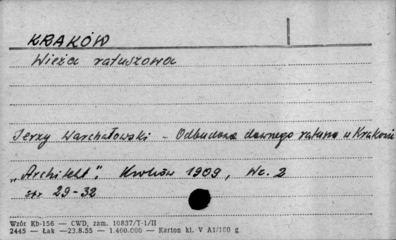 KRAKÓW
Wieża ratuszowa
Jerzy Warchałowski - Odbudowa dawnego ratusza w Krakowie
„Architekt", Kraków 1909, Nr. 2
str 29-32
Wzór Kb-156 — CWD, zam. 10837/T-1/II
2445 — Łak —23.8.55 — 1.400.000 — Karton kl. V A1/180 g.